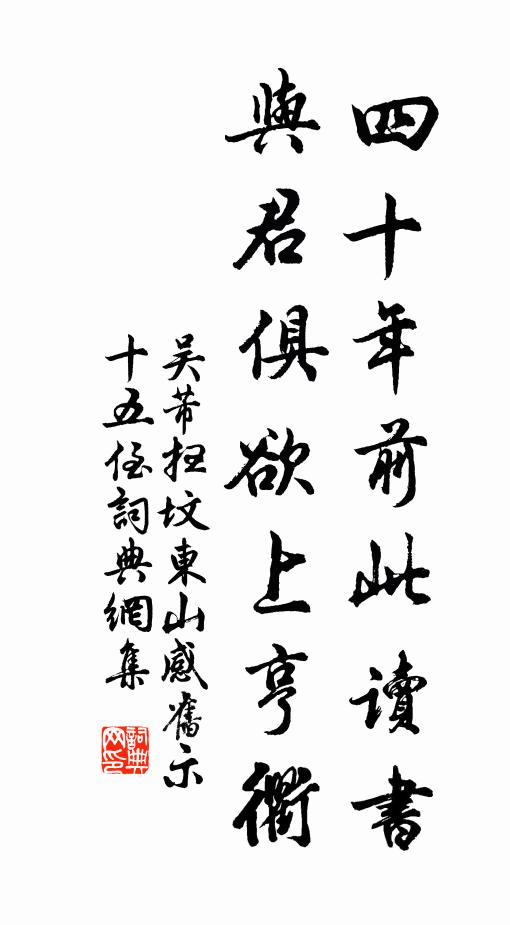 四十年前此讀書
與君俱欲上亨衢
吴芾扫坟東山感舊示
十五侄詞典網集
詞典网印